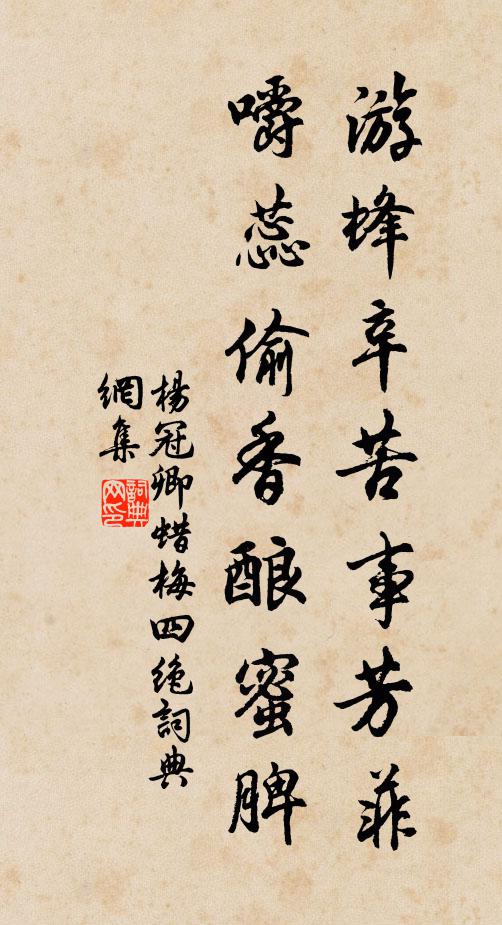 游蜂辛苦事芳菲
嚼蕊偷香酿蜜脾
楊冠卿蜡梅四绝詞典
網集
詞典
网印